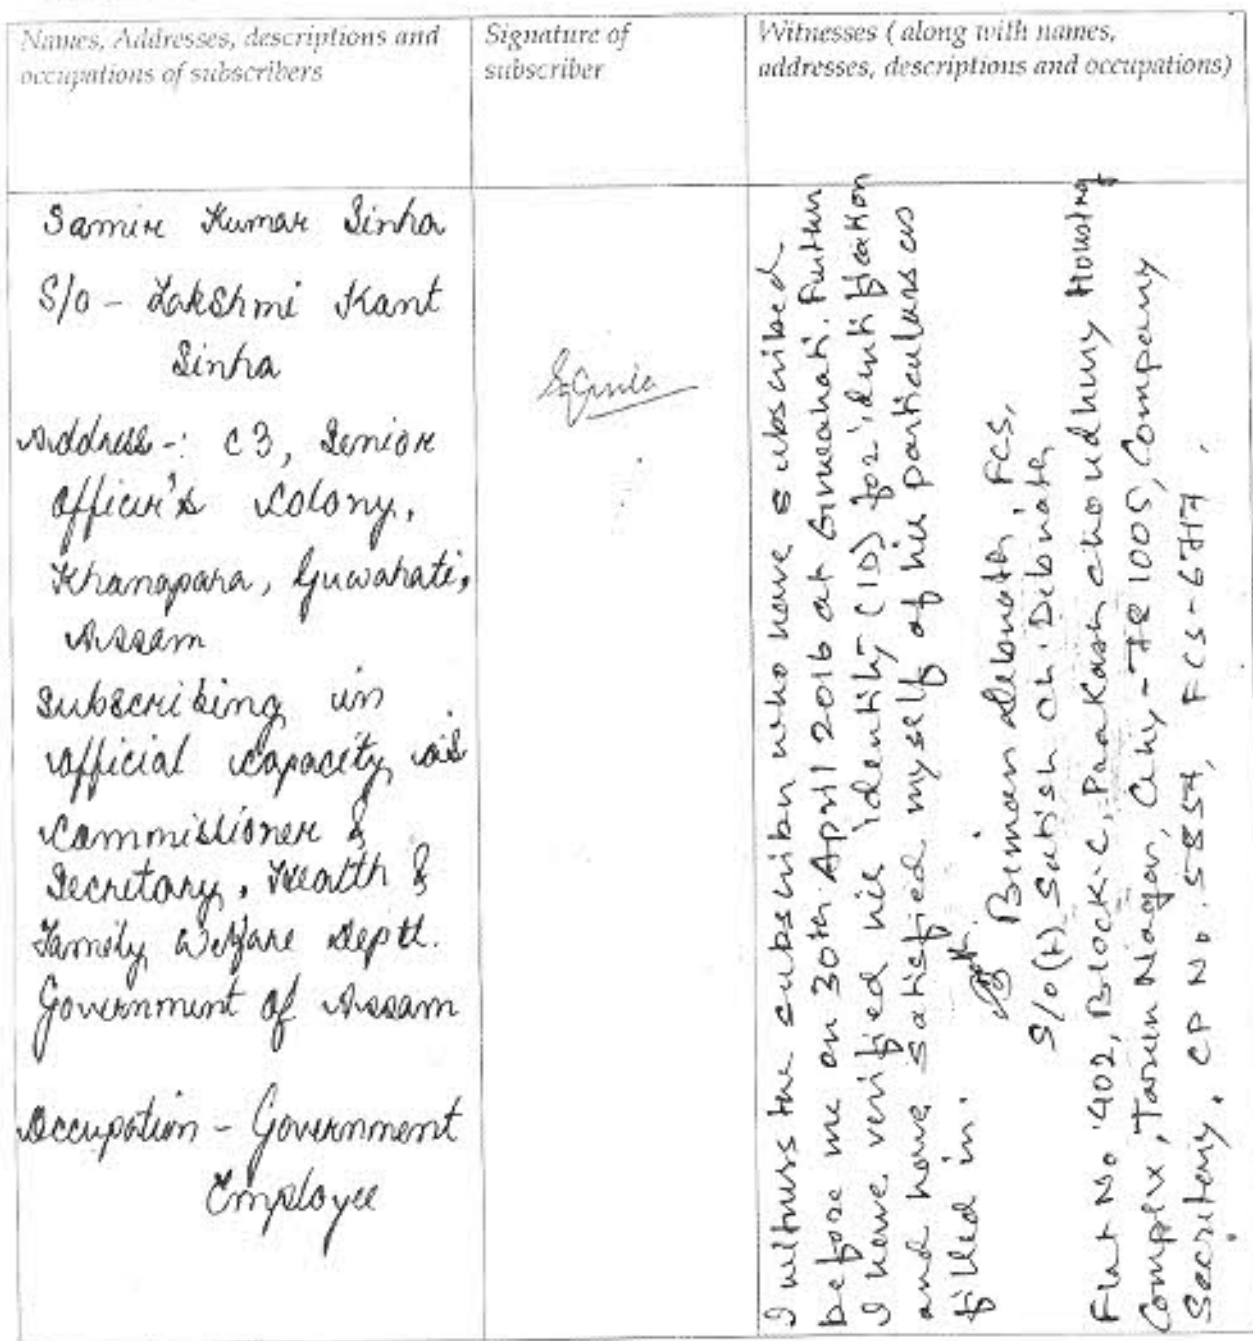 Names, Addresses, descriptions and
occupations of subscribers
Signature of
subscriber
Witnesses ( along with names,
addresses, descriptions and occupations)
Samir Kumar Sinha
S/o - Lakshmi Kant
Sinha
Address -: C3, Senior
Officer's Colony,
Khanapara, Guwahati,
Assam
Subscribing in
official capacity as
Commissioner &
Secretary, Health &
Family Welfare Deptt.
Government of Assam
Occupation - Government
Employee
I witness the subscriber who have subscribed
before me on 30th April 2016 at Guwahati. Further
I have verified his identity (ID) for identification
and have satisfied myself of his particulars as
filled in.
Biman Debnath, FCS,
S/o (L) Satish Ch. Debnath
Flat No 402, Block-C, Prakash Choudhury Housing
Complex, Tarun Nagar, Ghy - 781005, Company
Secretary. CP No. 5854, FCS-6717.